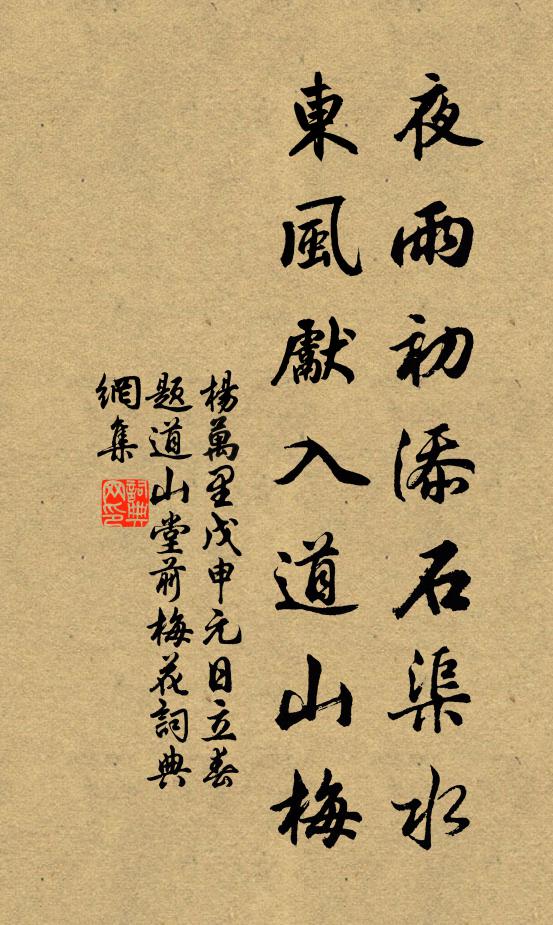 夜雨初添石渠水
東風獻入道山梅
楊萬里戊申元日立春
題道山堂前梅花詞典
網集
詞典網印